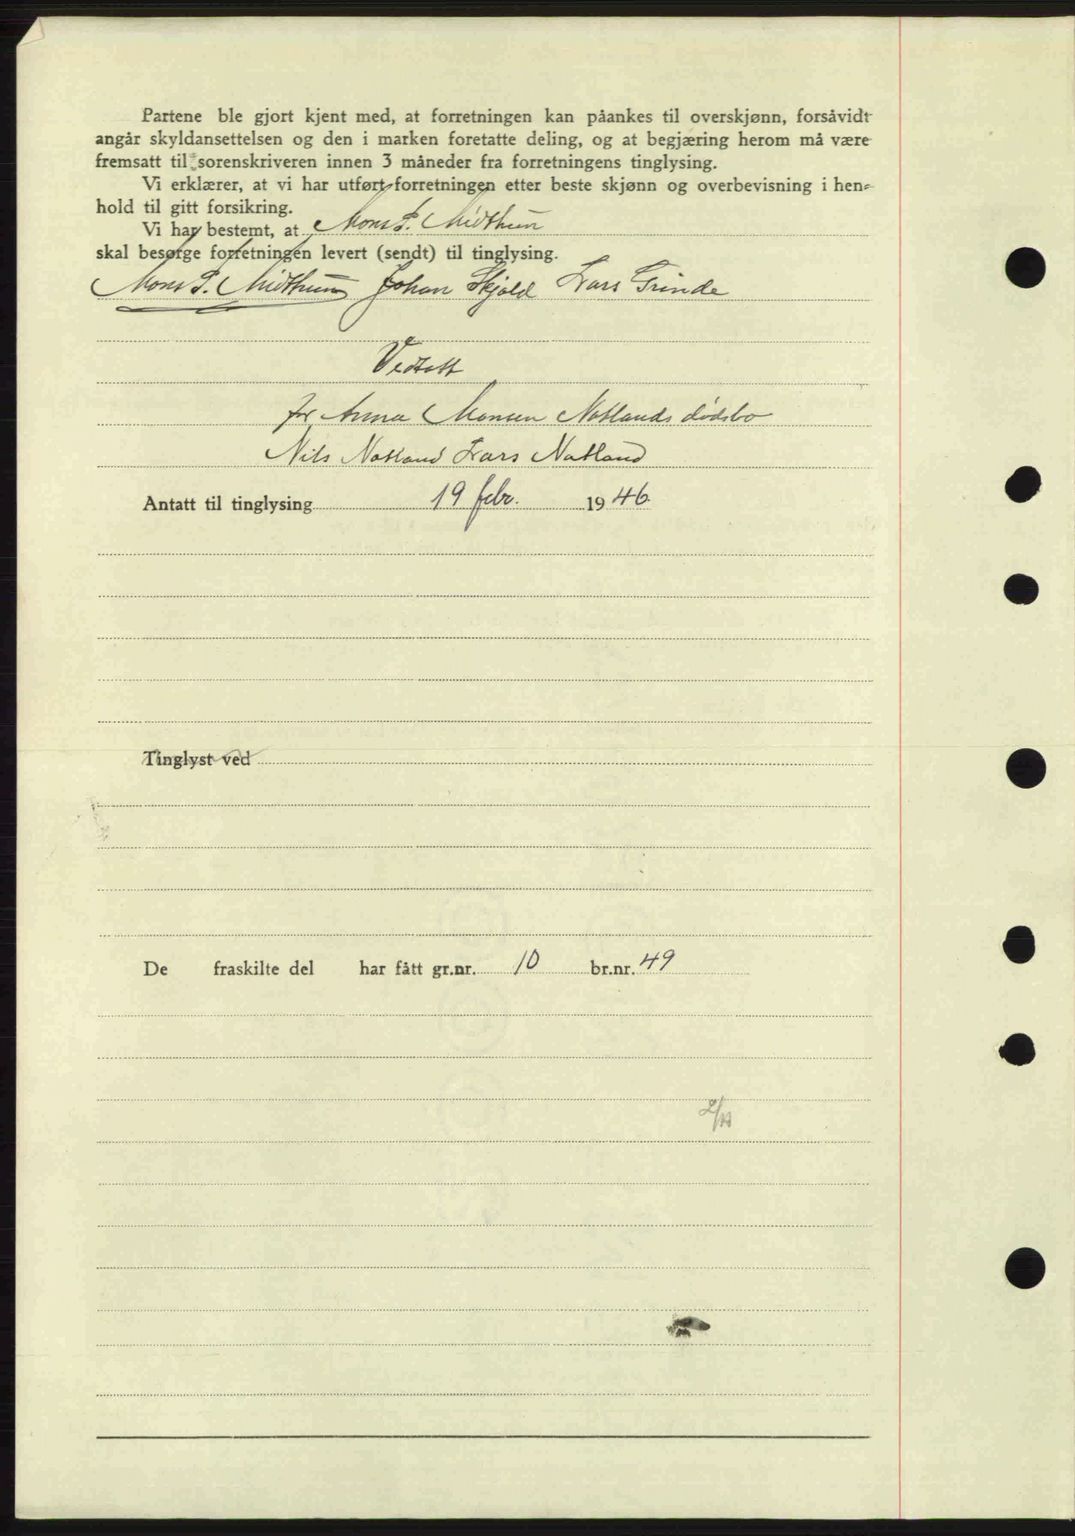 Partene ble gjort kjent med, at forretningen kan påankes til overskjønn, forsåvidt
angår skyldansettelsen og den i marken foretatte deling, og at begjæring herom må være
fremsatt til sorenskriveren innen 3 måneder fra forretningens tinglysing.
Vi erklærer, at vi har utført forretningen etter beste skjønn og overbevisning i hen-
hold til gitt forsikring.
Vi har bestemt, at Mons P. Midthun
skal besørge forretningen levert (sendt) til tinglysing.
Mons P. Midthun Johan Skjold Lars Grinde
Vedtatt
for Anna Monsen Natlands dødsbo
Nils Natland Lars Natland
Antatt til tinglysing 19 febr. 1946
Tinglyst ved
De fraskilte del har fått gr.nr. 10 br.nr. 49